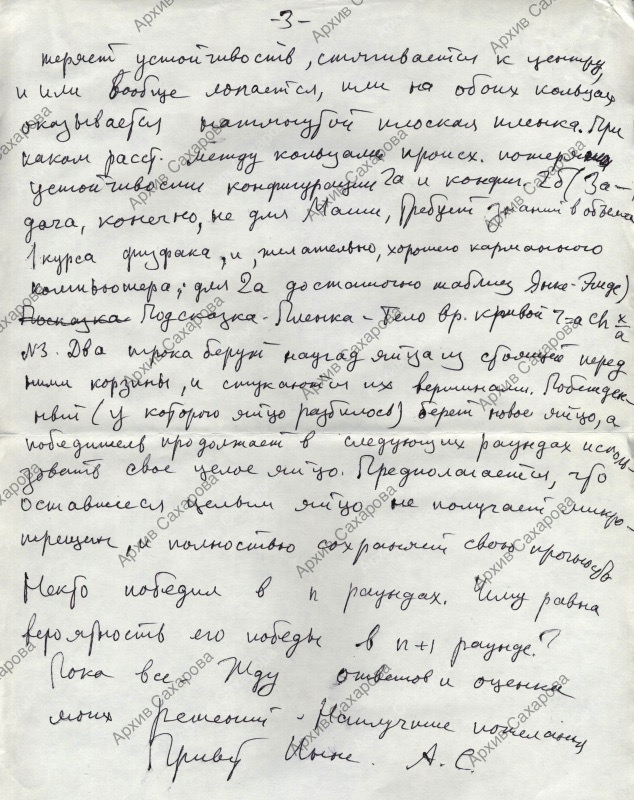 -3-
теряет устойчивость, стягивается к центру,
и или вообще лопается, или на обоих кольцах
оказывается натянутой плоская пленка. При
каком расст. между кольцами происх. потеря
устойчивости конфигурации 2а и конфиг. 2б (За-
дача, конечно, не для Маши, требует знаний в объеме
1 курса физфака, и, желательно, хорошего карманного
компьютера; для 2а достаточно таблиц Янке-Эмде)
Подсказка - Пленка - тело вр. кривой r=a ch x/a
N3. Два игрока берут наугад яйца из стоящей перед
ними корзины, и стукаются их вершинами. Побежден-
ный (у которого яйцо разбилось) берет новое яйцо, а
победитель продолжает в следующих раундах исполь-
зовать свое целое яйцо. Предполагается, что
оставшееся целым яйцо не получает микро-
трещин, и полностью сохраняет свою прочность
Некто победил в n раундах. Чему равна
вероятность его победы в n+1 раунде?
Пока все. Жду ответов и оценки
моих решений. Наилучшие пожелания
Привет Инне. А.С.
Архив Сахарова